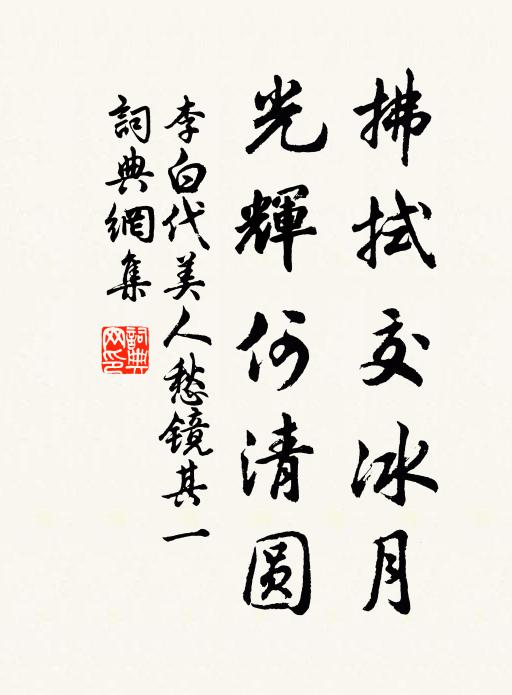 拂拭交冰月
光輝何清圆
李白代美人愁鏡其一
詞典網集
詞典网印